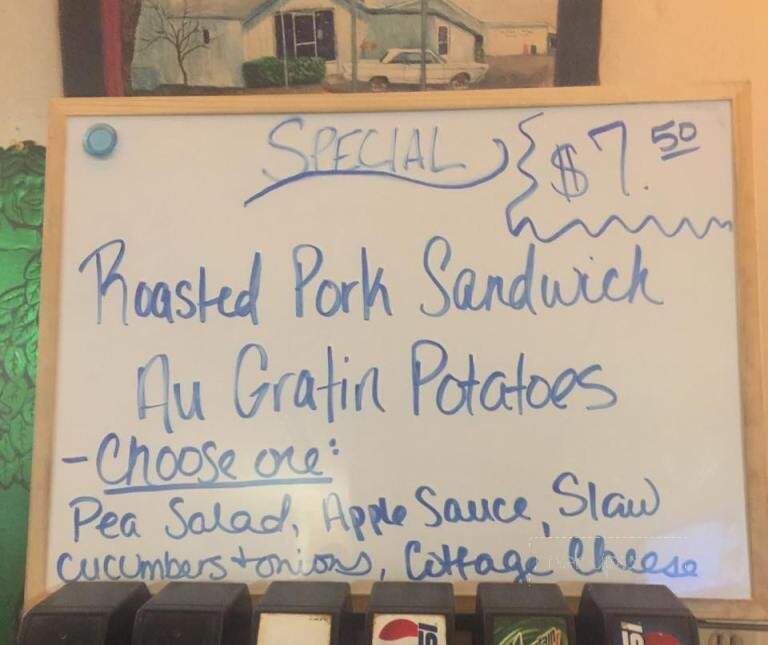 SPECIAL $7.50
Roasted Pork Sandwich
Au Gratin Potatoes
- Choose one:
Pea Salad, Apple Sauce, Slaw
cucumbers + onions, Cottage Cheese